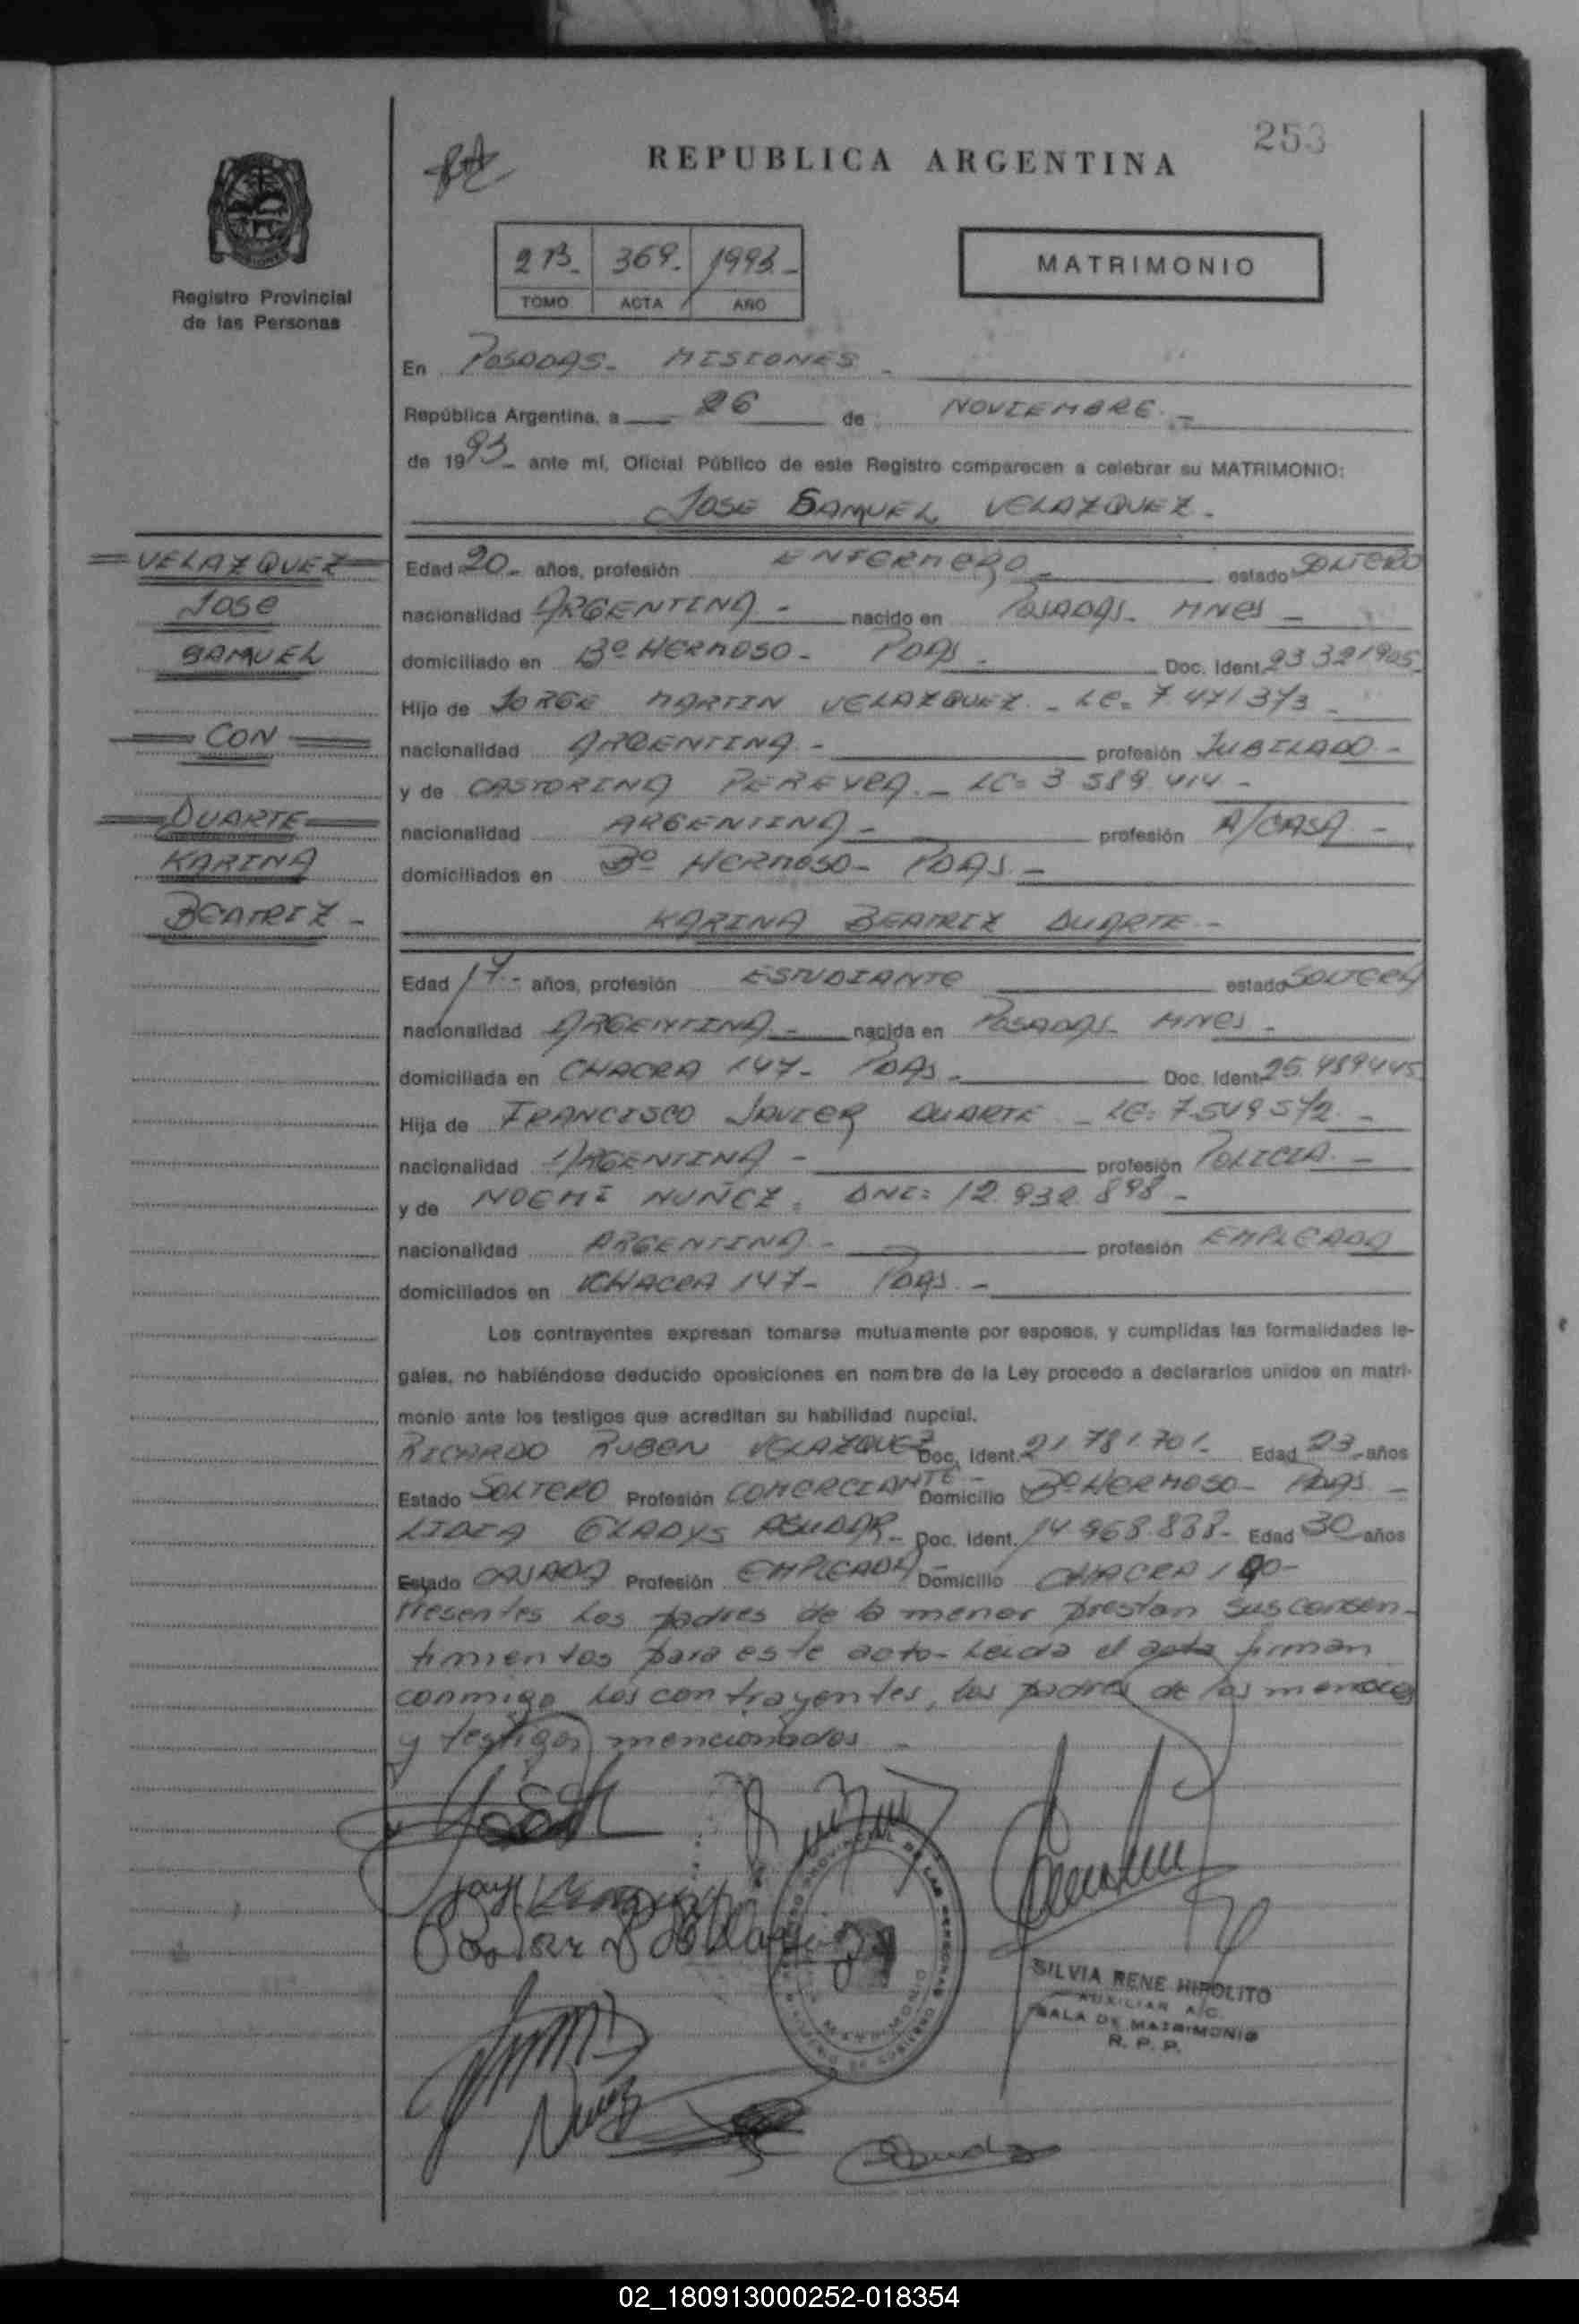 253
REPUBLICA ARGENTINA
Registro Provincial
de las Personas
369. 1993.-
TOMO ACTA AÑO
MATRIMONIO
En POSADAS- MISIONES -
República Argentina, a 26 de NOVIEMBRE.-
de 1993- ante mí, Oficial Público de este Registro comparecen a celebrar su MATRIMONIO:
JOSE SAMUEL VELAZQUEZ.-
=VELAZQUEZ=
JOSE
SAMUEL
= CON =
=DUARTE=
KARINA
BEATRIZ-
Edad 20- años, profesión ENFERMERO- estado SOLTERO
nacionalidad ARGENTINA- nacido en POSADAS- MNES-
domiciliado en Bº HERMOSO- PDAS- Doc. Ident. 23321905
Hijo de JORGE MARTIN VELAZQUEZ.- LE= 7.471373-
nacionalidad ARGENTINA.- profesión JUBILADO.-
y de CASTORINA PEREYRA.- LC= 3.589.414-
nacionalidad ARGENTINA- profesión A/CASA-
domiciliados en Bº HERMOSO- PDAS.-
KARINA BEATRIZ DUARTE.-
Edad 17- años, profesión ESTUDIANTE estado SOLTERA
nacionalidad ARGENTINA- nacida en POSADAS- MNES-
domiciliada en CHACRA 147- PDAS- Doc. Ident. 25.989445
Hija de FRANCISCO JAVIER DUARTE- LE: 7.549572.-
nacionalidad ARGENTINA- profesión POLICIA.-
y de NOEMI NUÑEZ. DNI: 12.932.898-
nacionalidad ARGENTINA- profesión EMPLEADA
domiciliados en CHACRA 147- PDAS.-
Los contrayentes expresan tomarse mutuamente por esposos, y cumplidas las formalidades le-
gales, no habiéndose deducido oposiciones en nombre de la Ley procedo a declararlos unidos en matri-
monio ante los testigos que acreditan su habilidad nupcial.
RICARDO RUBEN VELAZQUEZ Doc. Ident. 21.781.701- Edad 23 años
Estado SOLTERO Profesión COMERCIANTE- Domicilio Bº HERMOSO- PDAS-
LIDIA GLADYS Doc. Ident. 14.968.838- Edad 30 años
Estado CASADA Profesión EMPLEADA- Domicilio CHACRA 190-
Presentes los padres de la menor prestan sus consen-
timientos para este acto- Leida el acta firman
conmigo los contrayentes, los padres de los menores
y testigos mencionados-
REGISTRO PROVINCIAL DE LAS PERSONAS
MATRIMONIO
SILVIA RENE HIPOLITO
AUXILIAR A/C.
SALA DE MATRIMONIO
R. P. P.
02_180913000252-018354